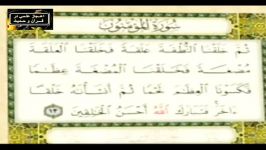 اعجاز علمی در
قرآن و حدیث
سُورَةُ المُؤْمِنُونَ
ثُمَّ خَلَقْنَا النُّطْفَةَ عَلَقَةً فَخَلَقْنَا الْعَلَقَةَ
مُضْغَةً فَخَلَقْنَا الْمُضْغَةَ عِظَٰمًا
فَكَسَوْنَا الْعِظَٰمَ لَحْمًا ثُمَّ أَنشَأْنَٰهُ خَلْقًا
ءَاخَرَ فَتَبَارَكَ اللَّهُ أَحْسَنُ الْخَٰلِقِينَ ١٤